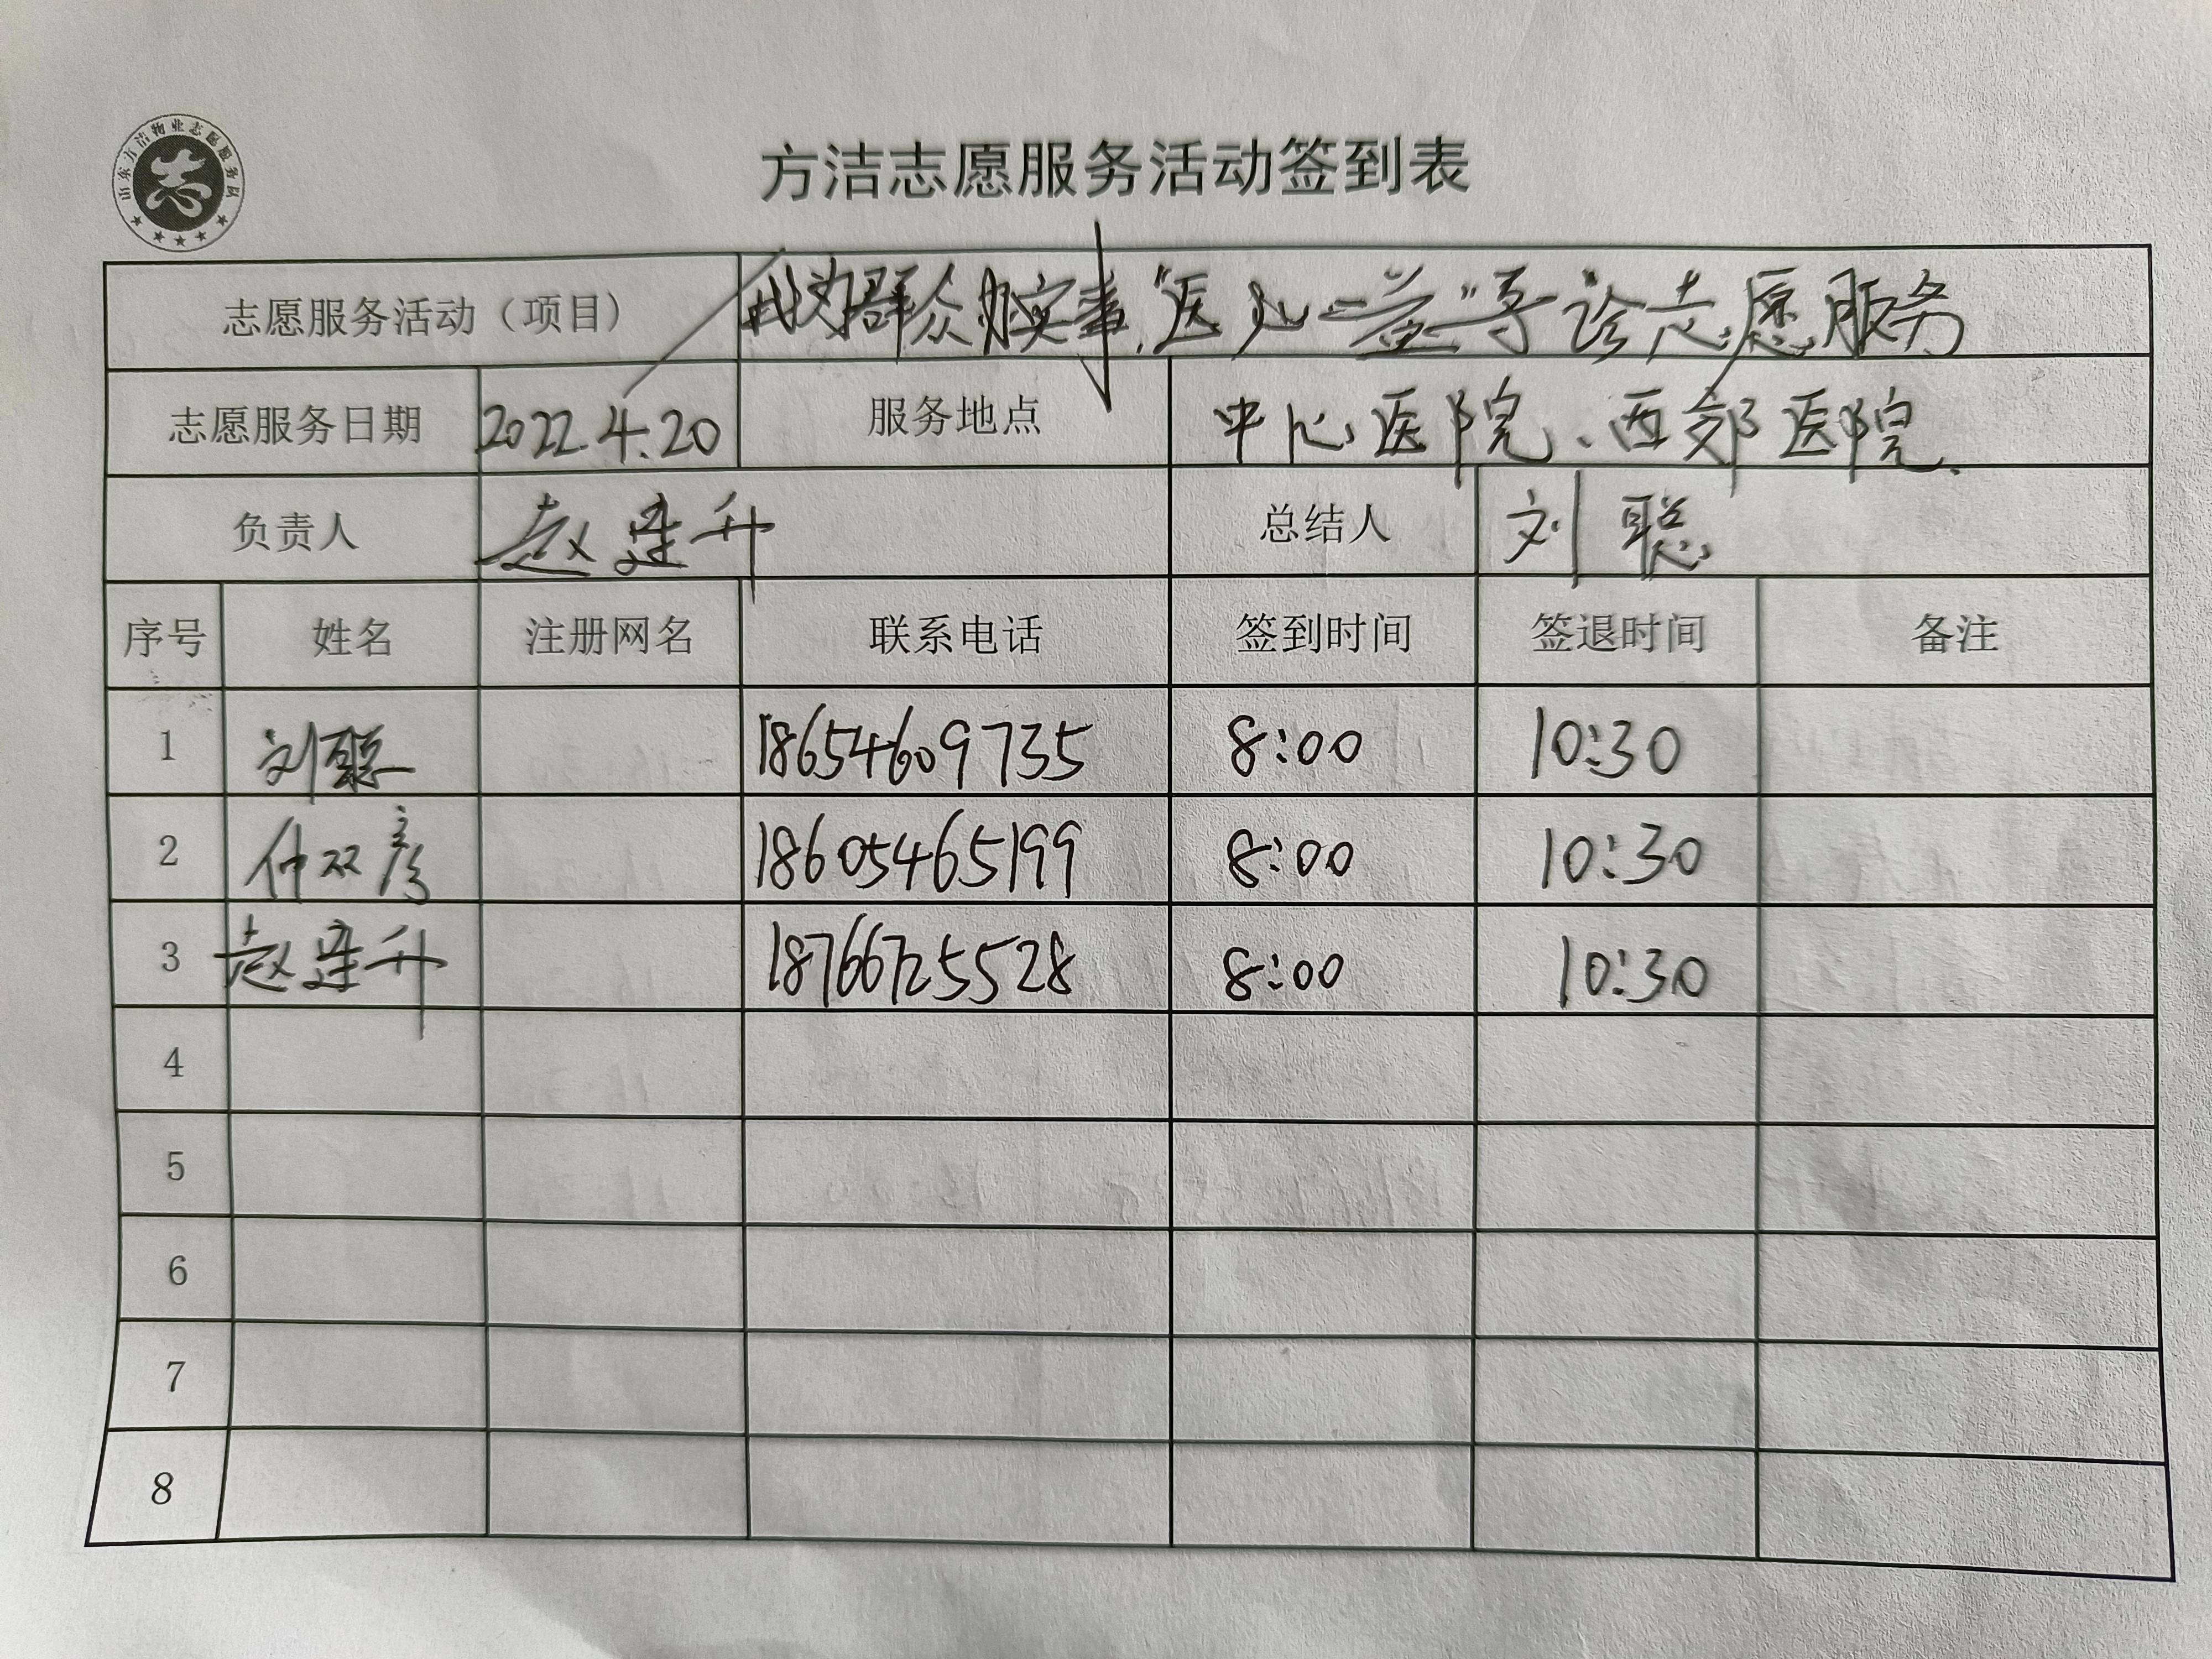 山东方洁物业志愿服务队
方洁志愿服务活动签到表
志愿服务活动（项目） 我为群众办实事."医九一益"导诊志愿服务
志愿服务日期 2022.4.20 服务地点 中心医院、西郊医院.
负责人 赵连升 总结人 刘聪
序号 姓名 注册网名 联系电话 签到时间 签退时间 备注
1 刘聪 18654609735 8:00 10:30
2 仲双彦 18605465199 8:00 10:30
3 赵连升 18766725528 8:00 10:30
4
5
6
7
8